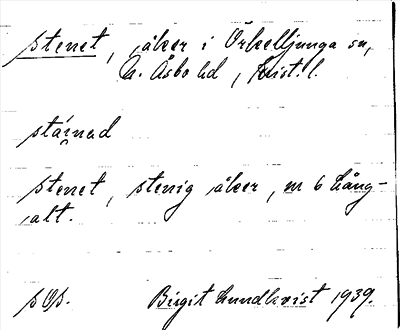 stenet, åker i Örkelljunga sn,
N. Åsbo hd, Krist. l.
stáinad
stenet, stenig åker, m 6 Lång-
alt.
Birgit Lundkvist 1939.